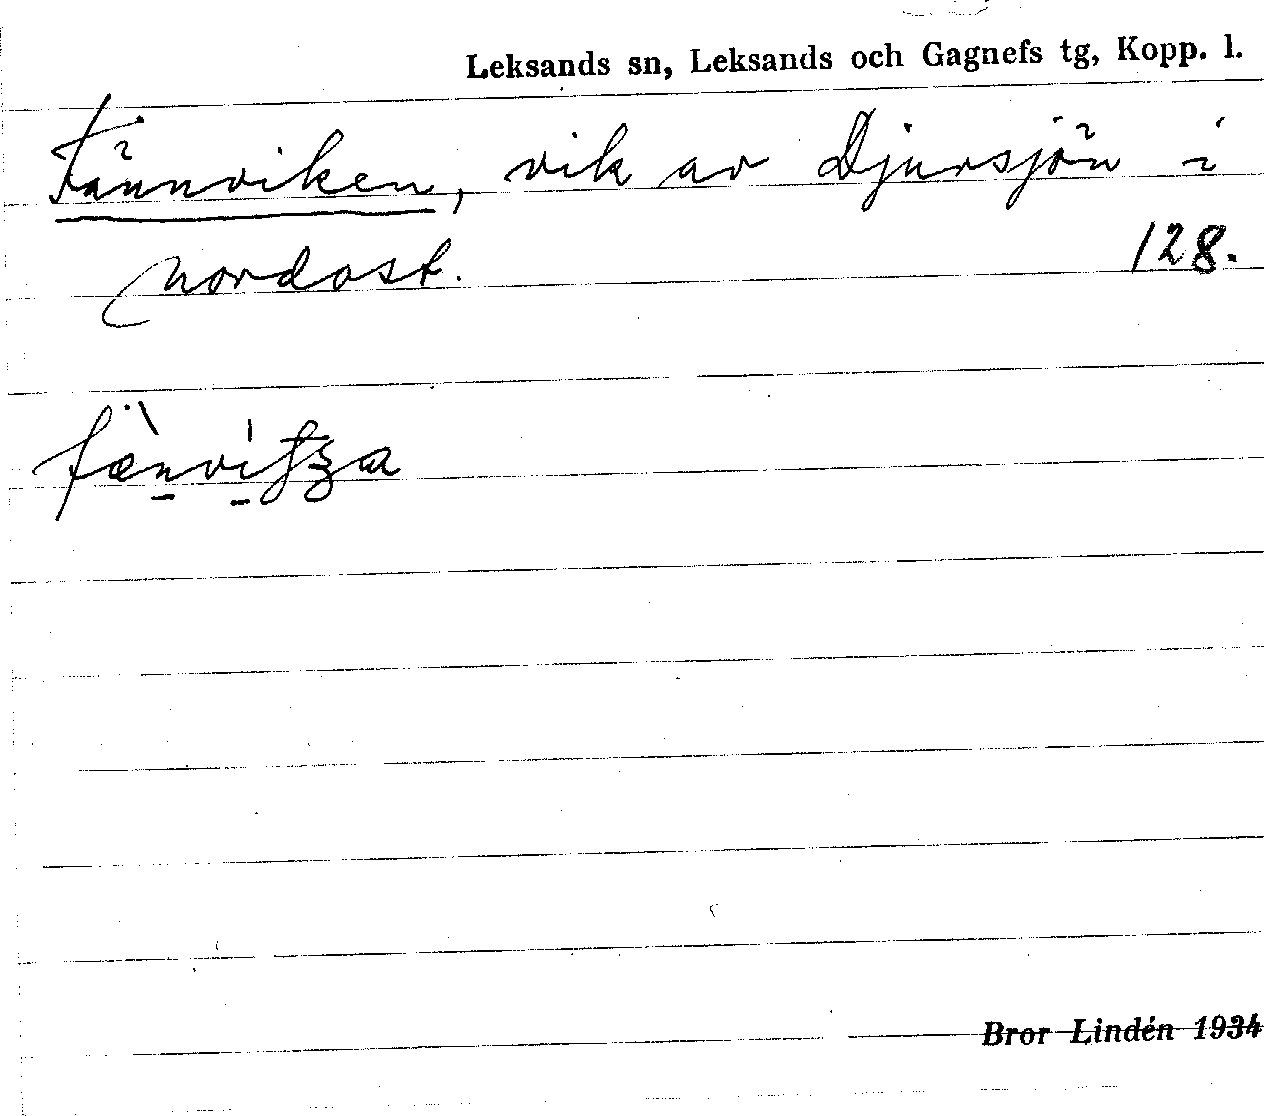 Leksands sn, Leksands och Gagnefs tg, Kopp. l.
Fännviken, vik av Djursjön i
nordost. 128.
Bror Lindén 1934